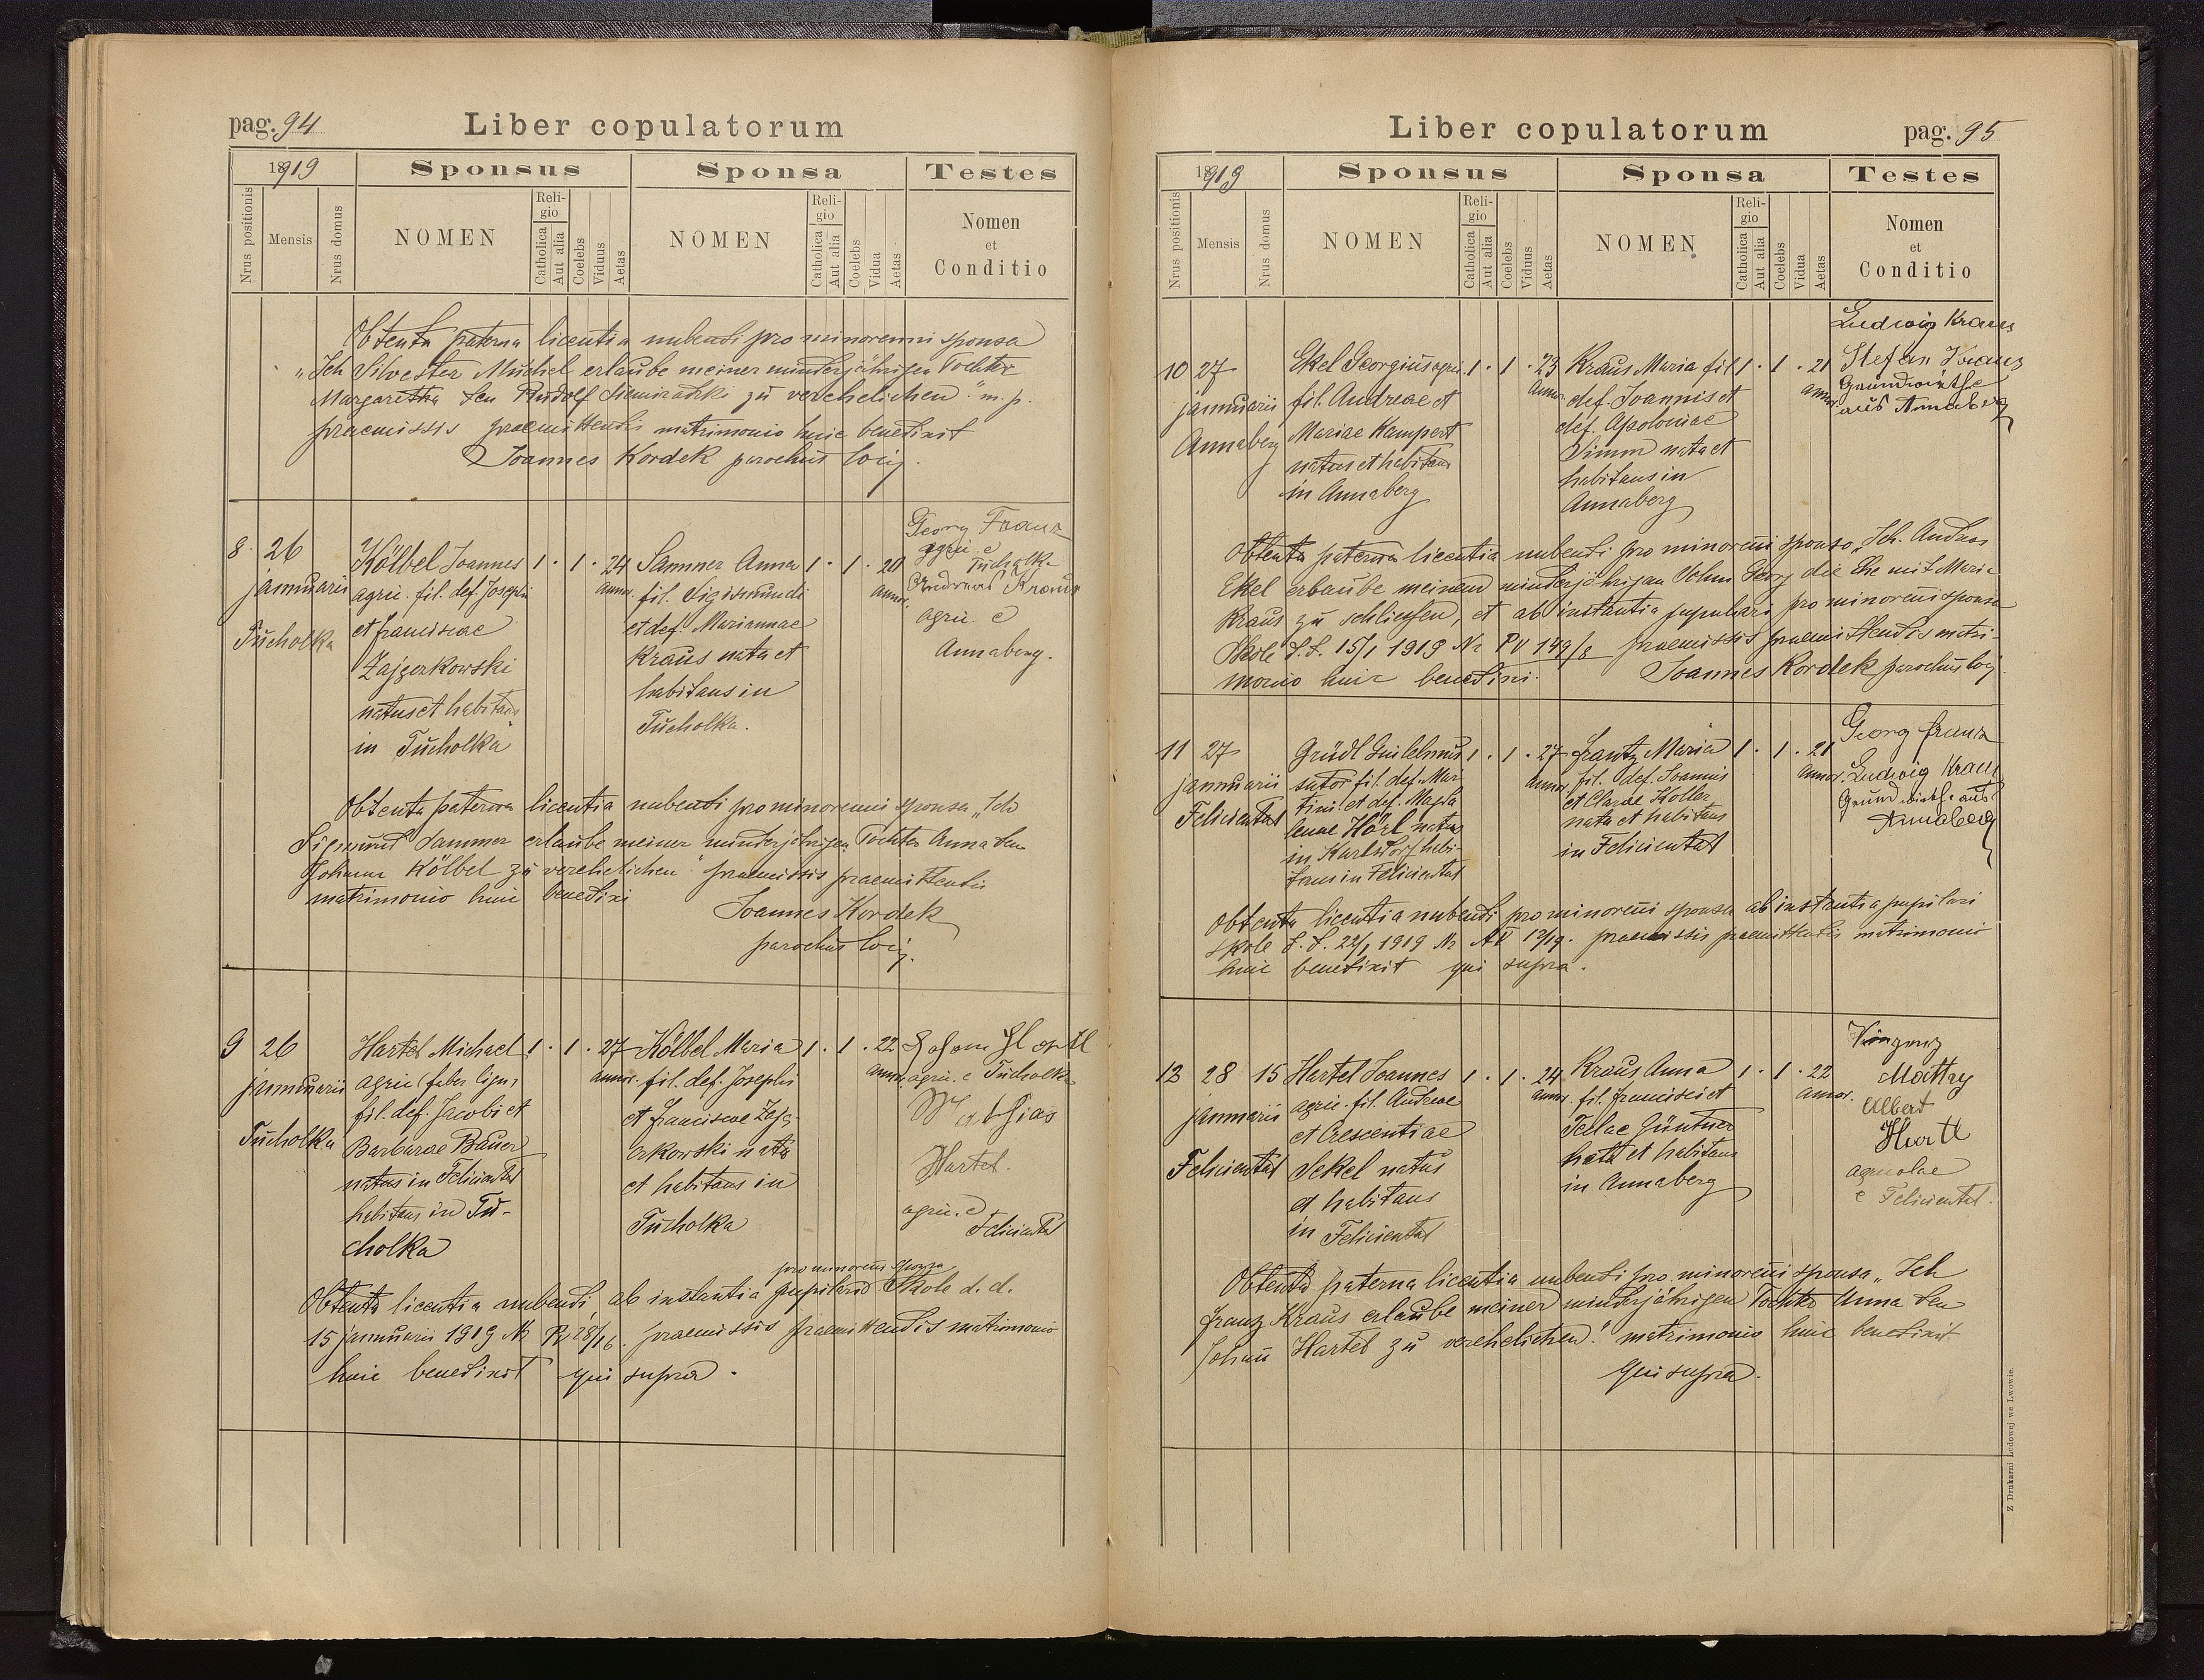 pag. 94
Liber copulatorum
1919
Sponsus
Sponsa
Testes
Nrus positionis
Mensis
Nrus domus
NOMEN
Religio
Catholica
Aut alia
Coelebs
Viduus
Aetas
NOMEN
Religio
Catholica
Aut alia
Coelebs
Vidua
Aetas
Nomen
et
Conditio
Obtenta paterna licentia nubendi pro minorenni sponsa
„Ich Silvester Michel erlaube meiner minderjährigen Tochter
Margaretha den Rudolf Siemiradzki zu verehelichen." m. p.
praemissis praemittendis matrimonio huic benedixit
Joannes Kordek parochus loci.
8. 26
januarii
Tucholka
Kölbel Joannes
agric. fil. def. Josephi
et franciscae
Zajzerkowski
natus et habitans
in Tucholka
1 . 1 . 24
annor.
Sammer Anna
fil. Sigismundi
et def. Mariannae
Kraus nata et
habitans in
Tucholka.
1 . 1 . 20
annor.
Georg Franz
agric. e
Tucholka
Andreas Kraus
agric. e
Annaberg.
Obtenta paterna licentia nubendi pro minorenni sponsa „Ich
Sigmund Sammer erlaube meiner minderjährigen Tochter Anna den
Johann Kölbel zu verehelichen" praemissis praemittendis
matrimonio huic benedixi
Joannes Kordek
parochus loci.
9 26
januarii
Tucholka
Hartel Michael
agric (faber lign,
fil. def. Jacobi et
Barbarae Bauer
natus in Felicienthal
habitans in Tu-
cholka
1 . 1 . 27
annor.
Kölbel Maria
fil. def. Josephi
et franciscae Zajz-
erkowski nata
et habitans in
Tucholka
1 . 1 . 22
annor.
agric. e Tucholka
Mathias
Hartel.
agric. e
Felicienthal
pro minoreni sponsa
Obtenta licentia nubendi, ab instantia pupilari Skole d. d.
15 januarii 1919 Nr P 28/16. praemissis praemittendis matrimonio
huic benedixit qui supra.
Liber copulatorum
pag. 95
1919
Sponsus
Sponsa
Testes
Nrus positionis
Mensis
Nrus domus
NOMEN
Religio
Catholica
Aut alia
Coelebs
Viduus
Aetas
NOMEN
Religio
Catholica
Aut alia
Coelebs
Vidua
Aetas
Nomen
et
Conditio
10 27
januarii
Annaberg
Ekel Georgius agric.
fil. Andreae et
Mariae Kampert
natus et habitans
in Annaberg
1 . 1 . 23
annor.
Kraus Maria fil
def. Joannis et
def. Apoloniae
Simm nata et
habitans in
Annaberg
1 . 1 . 21
annor.
Ludwig Kraus
Stefan Kraus
Grundwirthe
aus Annaberg
Obtenta paterna licentia nubendi pro minoreni sponso „Ich Andreas
Ekel erlaube meinem minderjährigen Sohn Georg die Ehe mit Maria
Kraus zu schließen, et ab instantia pupilari pro minoreni sponsa
Skole d. d. 15/1 1919 Nr PV 149/8 praemissis praemittendis matri-
monio huic benedixi. Joannes Kordek parochus loci.
11 27
januarii
Felicienthal
Grüdl Guilelmus
sutor fil. def. Mar-
tini et def. Magda
lenae Hörl natus
in Karlsdorf habi-
tans in Felicienthal
1 . 1 . 27
annor.
Frantz Maria
fil. def. Joannis
et Clarae Koller
nata et habitans
in Felicienthal
1 . 1 . 21
annor.
Georg franz
Ludwig Kraus
Grundwirthe aus
Annaberg
Obtenta licentia nubendi pro minoreni sponsa ab instantia pupilari
Skole d. d. 22/1 1919 Nr praemissis praemittendis matrimonio
huic benedixit qui supra.
12 28 15
januarii
Felicienthal
Hartel Joannes
agric. fil. Andreae
et Crescentiae
Sekel natus
et habitans
in Felicienthal
1 . 1 . 24
annor.
Kraus Anna
fil. francisci et
Teclae Güntner
nata et habitans
in Annaberg
1 . 1 . 22
annor.
Vinzenz
Mattey
Albert
Hartl
agricolae
e Felicienthal.
Obtenta paterna licentia nubendi pro minoreni sponsa „Ich
franz Kraus erlaube meiner minderjährigen Tochter Anna den
Johann Hartel zu verehelichen." matrimonio huic benedixit
qui supra.
Z Drukarni Ludowej we Lwowie.